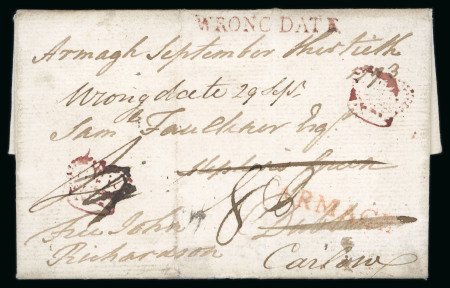 WRONG DATE
Armagh September thirtieth
1793
Wrong date 29 Sept
Saml Faulkner Esqr
Stephens Green
8
ARMAGH
Dublin
Free John
Richardson
Carlow